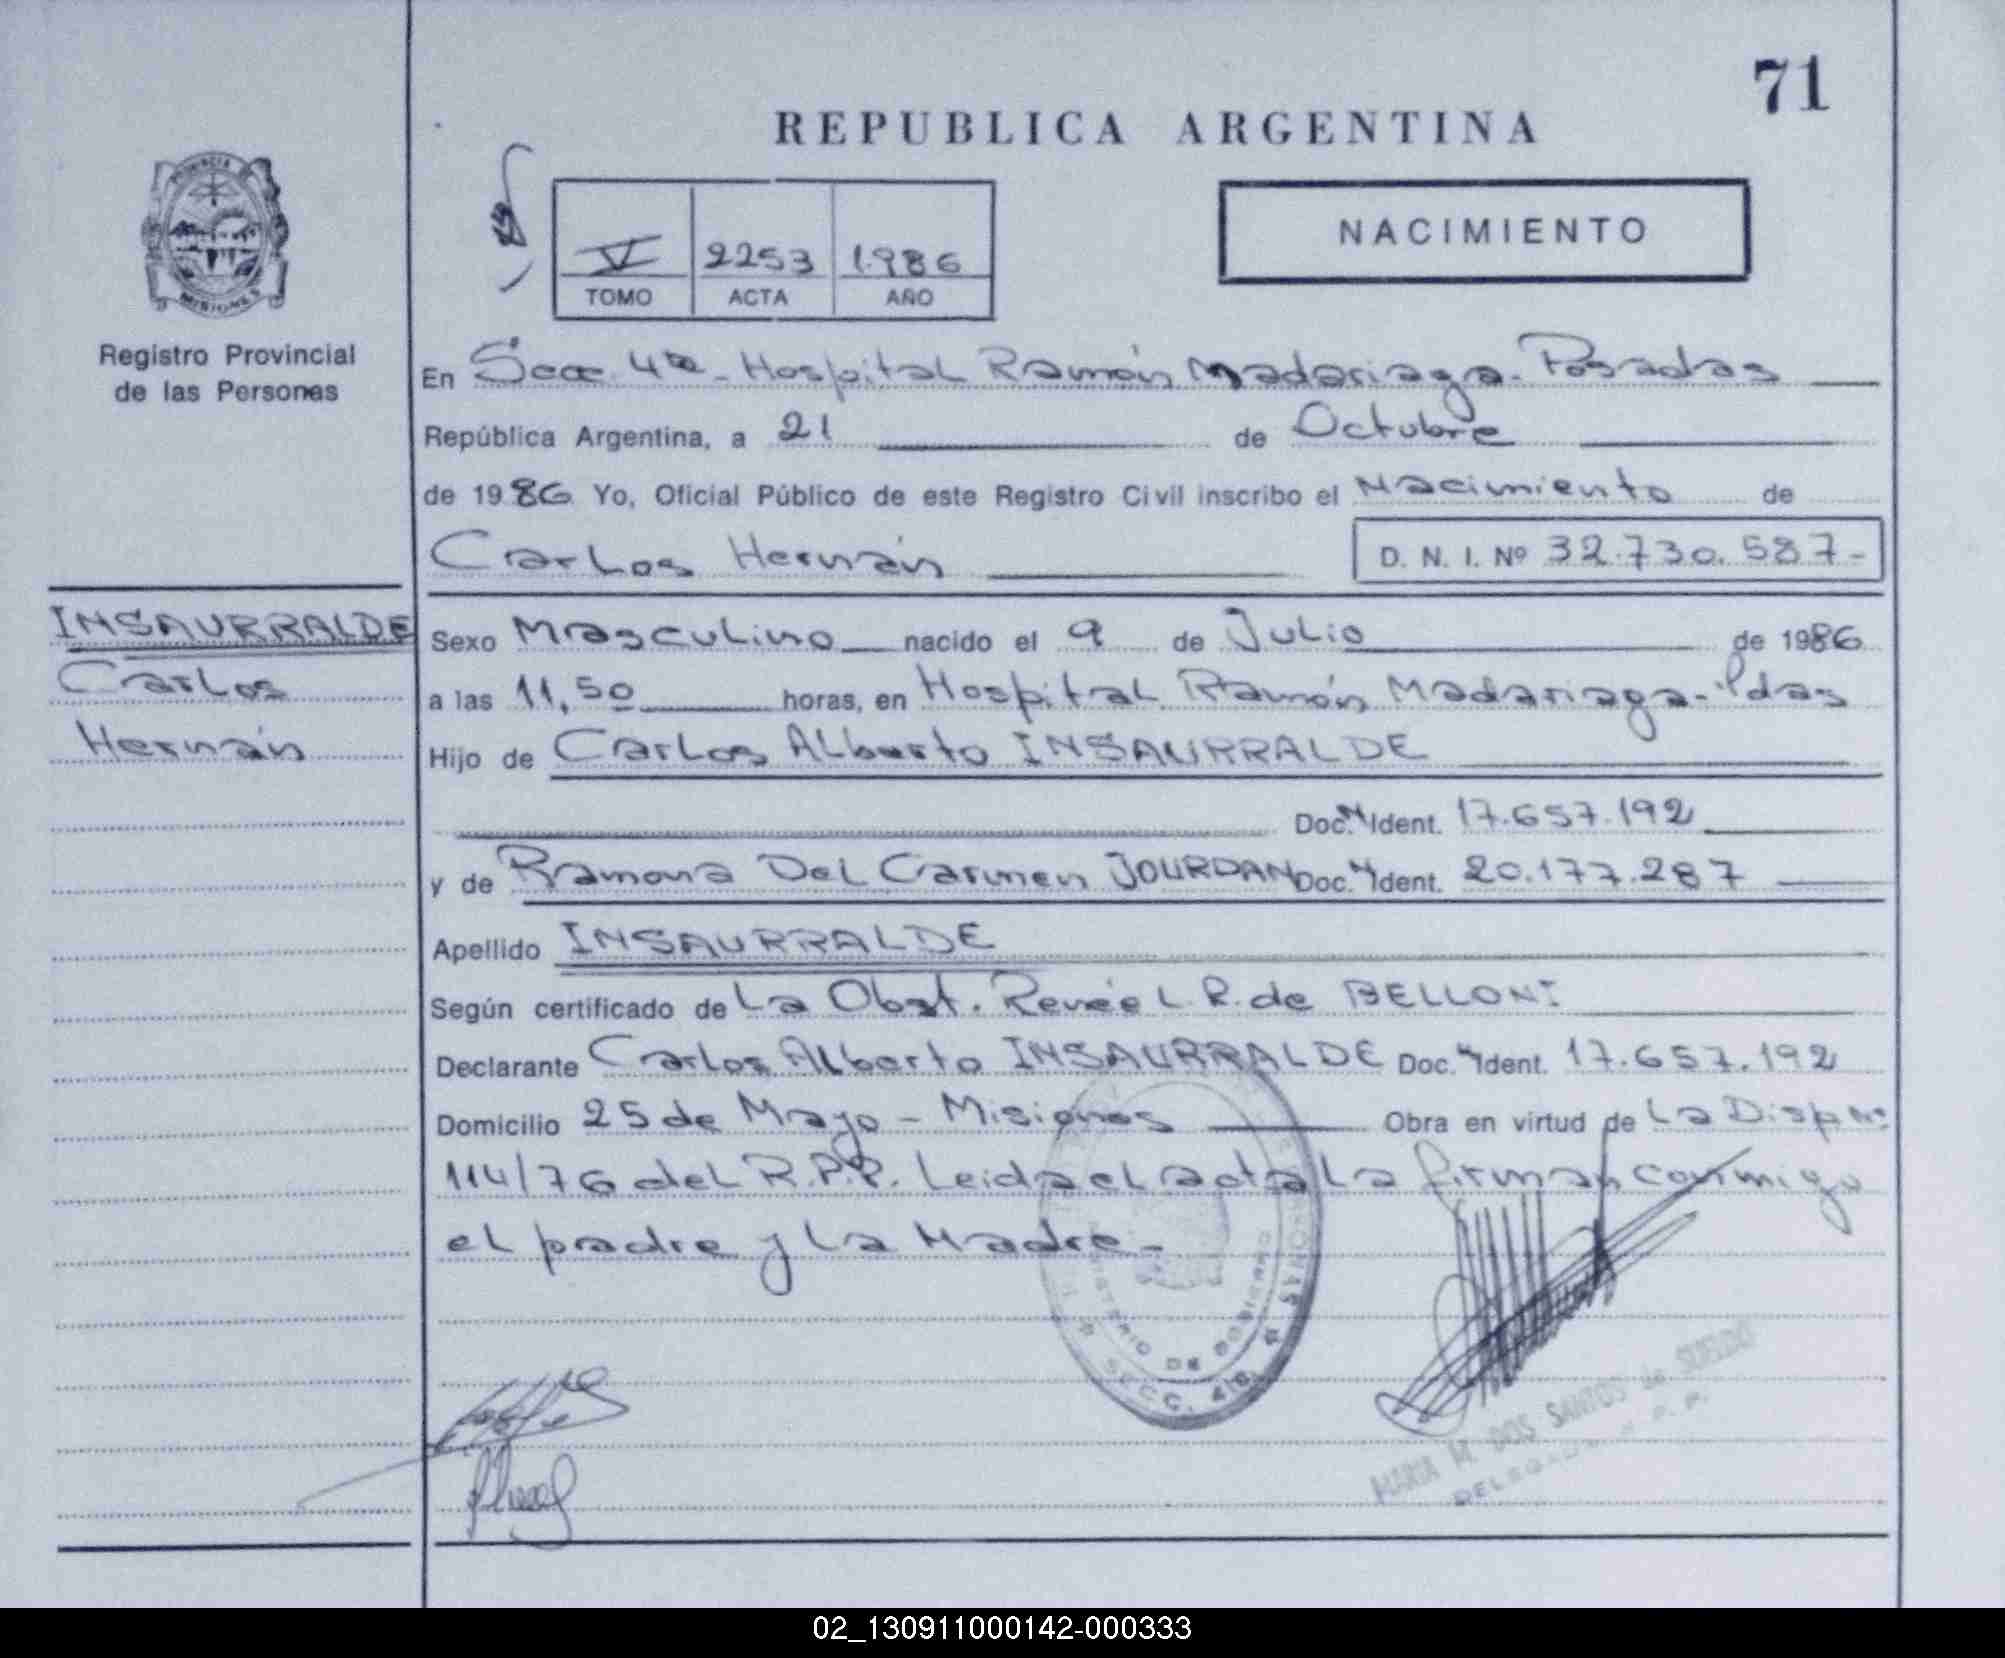 71
REPUBLICA ARGENTINA
PROVINCIA
MISIONES
V 2253 1.986
TOMO ACTA AÑO
NACIMIENTO
Registro Provincial
de las Personas
En Secc. 4ta - Hospital Ramón Madariaga - Posadas
República Argentina, a 21 de Octubre
de 1986 Yo, Oficial Público de este Registro Civil inscribo el Nacimiento de
Carlos Hernán D. N. I. Nº 32.730.587-
INSAURRALDE
Carlos
Hernán
Sexo Masculino nacido el 9 de Julio de 1986
a las 11,50 horas, en Hospital Ramón Madariaga - Pdas
Hijo de Carlos Alberto INSAURRALDE
Doc. Nº Ident. 17.657.192
y de Ramona Del Carmen JOURDAN Doc. Nº Ident. 20.177.287
Apellido INSAURRALDE
Según certificado de La Obst. Renée L. R. de BELLONI
Declarante Carlos Alberto INSAURRALDE Doc. Nº Ident. 17.657.192
Domicilio 25 de Mayo - Misiones Obra en virtud de La Disp Nº
114/76 del R.P.P. Leida el acta La firman conmigo
el padre y La Madre -
MINISTERIO DE GOBIERNO
SECC. 4ta.
MARIA M. DOS SANTOS de SUELDO
DELEGADA R. P. P.
02_130911000142-000333